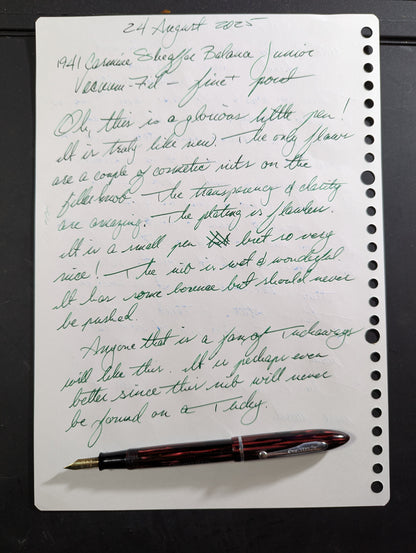 24 August 2025
1941 Carmine Sheaffer Balance Junior
Vacuum-Fil – fine+ point
Oh, this is a glorious little pen!
It is truly like new. The only flaws
are a couple of cosmetic nits on the
filler knob. The transparency & clarity
are amazing. The plating is flawless.
It is a small pen but so very
nice! The nib is wet & wonderful.
It has some bounce but should never
be pushed.
Anyone that is a fan of Tuckaways
will like this. It is perhaps even
better since this nib will never
be found on a Tucky.